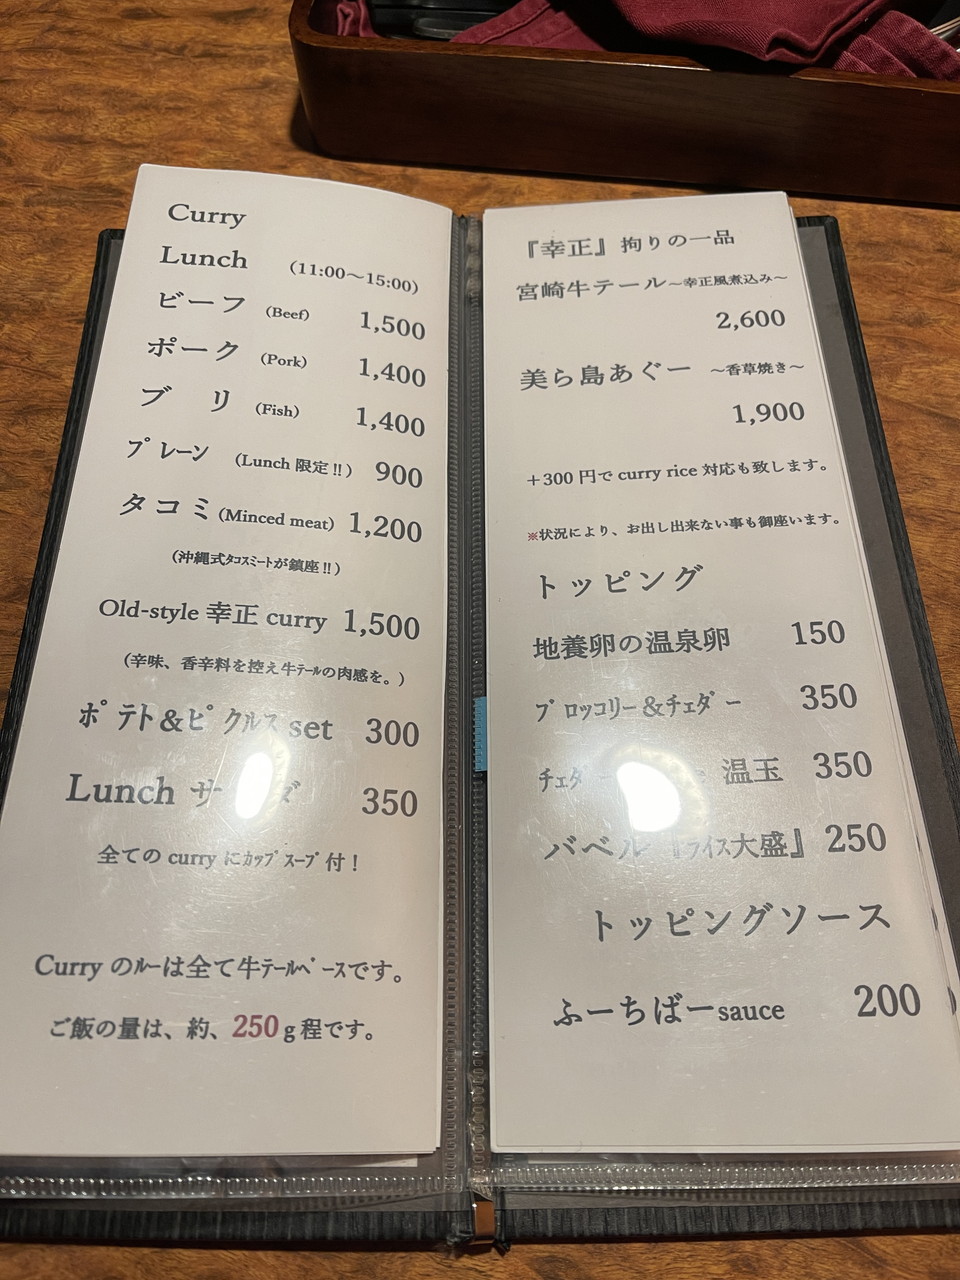 Curry
Lunch (11:00〜15:00)
ビーフ (Beef) 1,500
ポーク (Pork) 1,400
ブリ (Fish) 1,400
プレーン (Lunch 限定!!) 900
タコミ (Minced meat) 1,200
(沖縄式タコスミートが鎮座!!)
Old-style 幸正 curry 1,500
(辛味、香辛料を控え牛テールの肉感を。)
ポテト&ピクルス set 300
Lunch 350
全ての curry にカップスープ付!
Curry のルーは全て牛テールベースです。
ご飯の量は、約、250g程です。
『幸正』拘りの一品
宮崎牛テール〜幸正風煮込み〜
2,600
美ら島あぐー 〜香草焼き〜
1,900
+300 円で curry rice 対応も致します。
※状況により、お出し出来ない事も御座います。
トッピング
地養卵の温泉卵 150
ブロッコリー&チェダー 350
温玉 350
バベル『ライス大盛』 250
トッピングソース
ふーちばーsauce 200